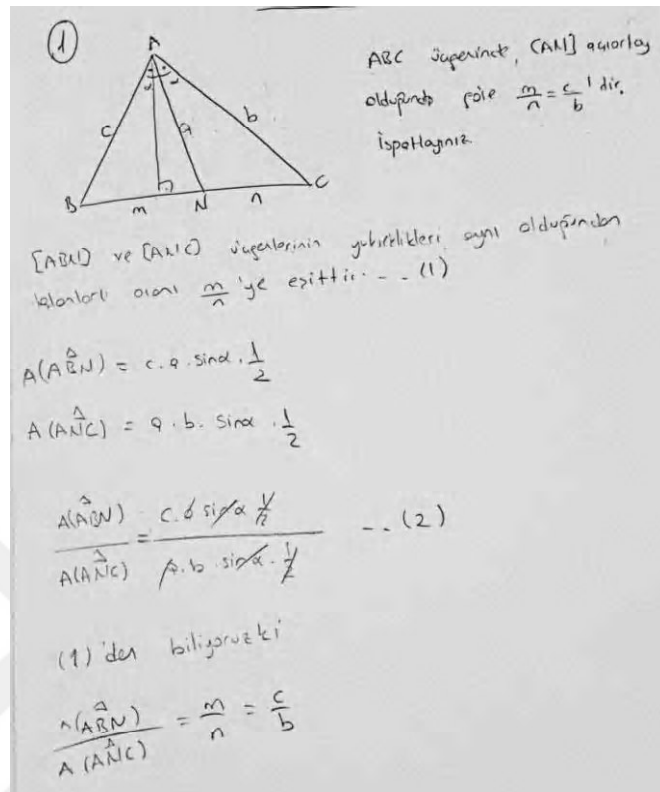 1
A
c
a
b
B
m
N
n
C
ABC üçgeninde, [AN] açıortay
olduğunda göre m/n = c/b 'dir.
ispatlayınız
[ABN] ve [ANC] üçgenlerinin yükseklikleri aynı olduğundan
alanları oranı m/n 'ye eşittir. - - (1)
A(ABN) = c.a.sinα.1/2
A(ANC) = a.b.sinα.1/2
A(ABN)/A(ANC) = c.a sinα 1/2 / a.b.sinα.1/2 -- (2)
(1)'den biliyoruzki
A(ABN)/A(ANC) = m/n = c/b